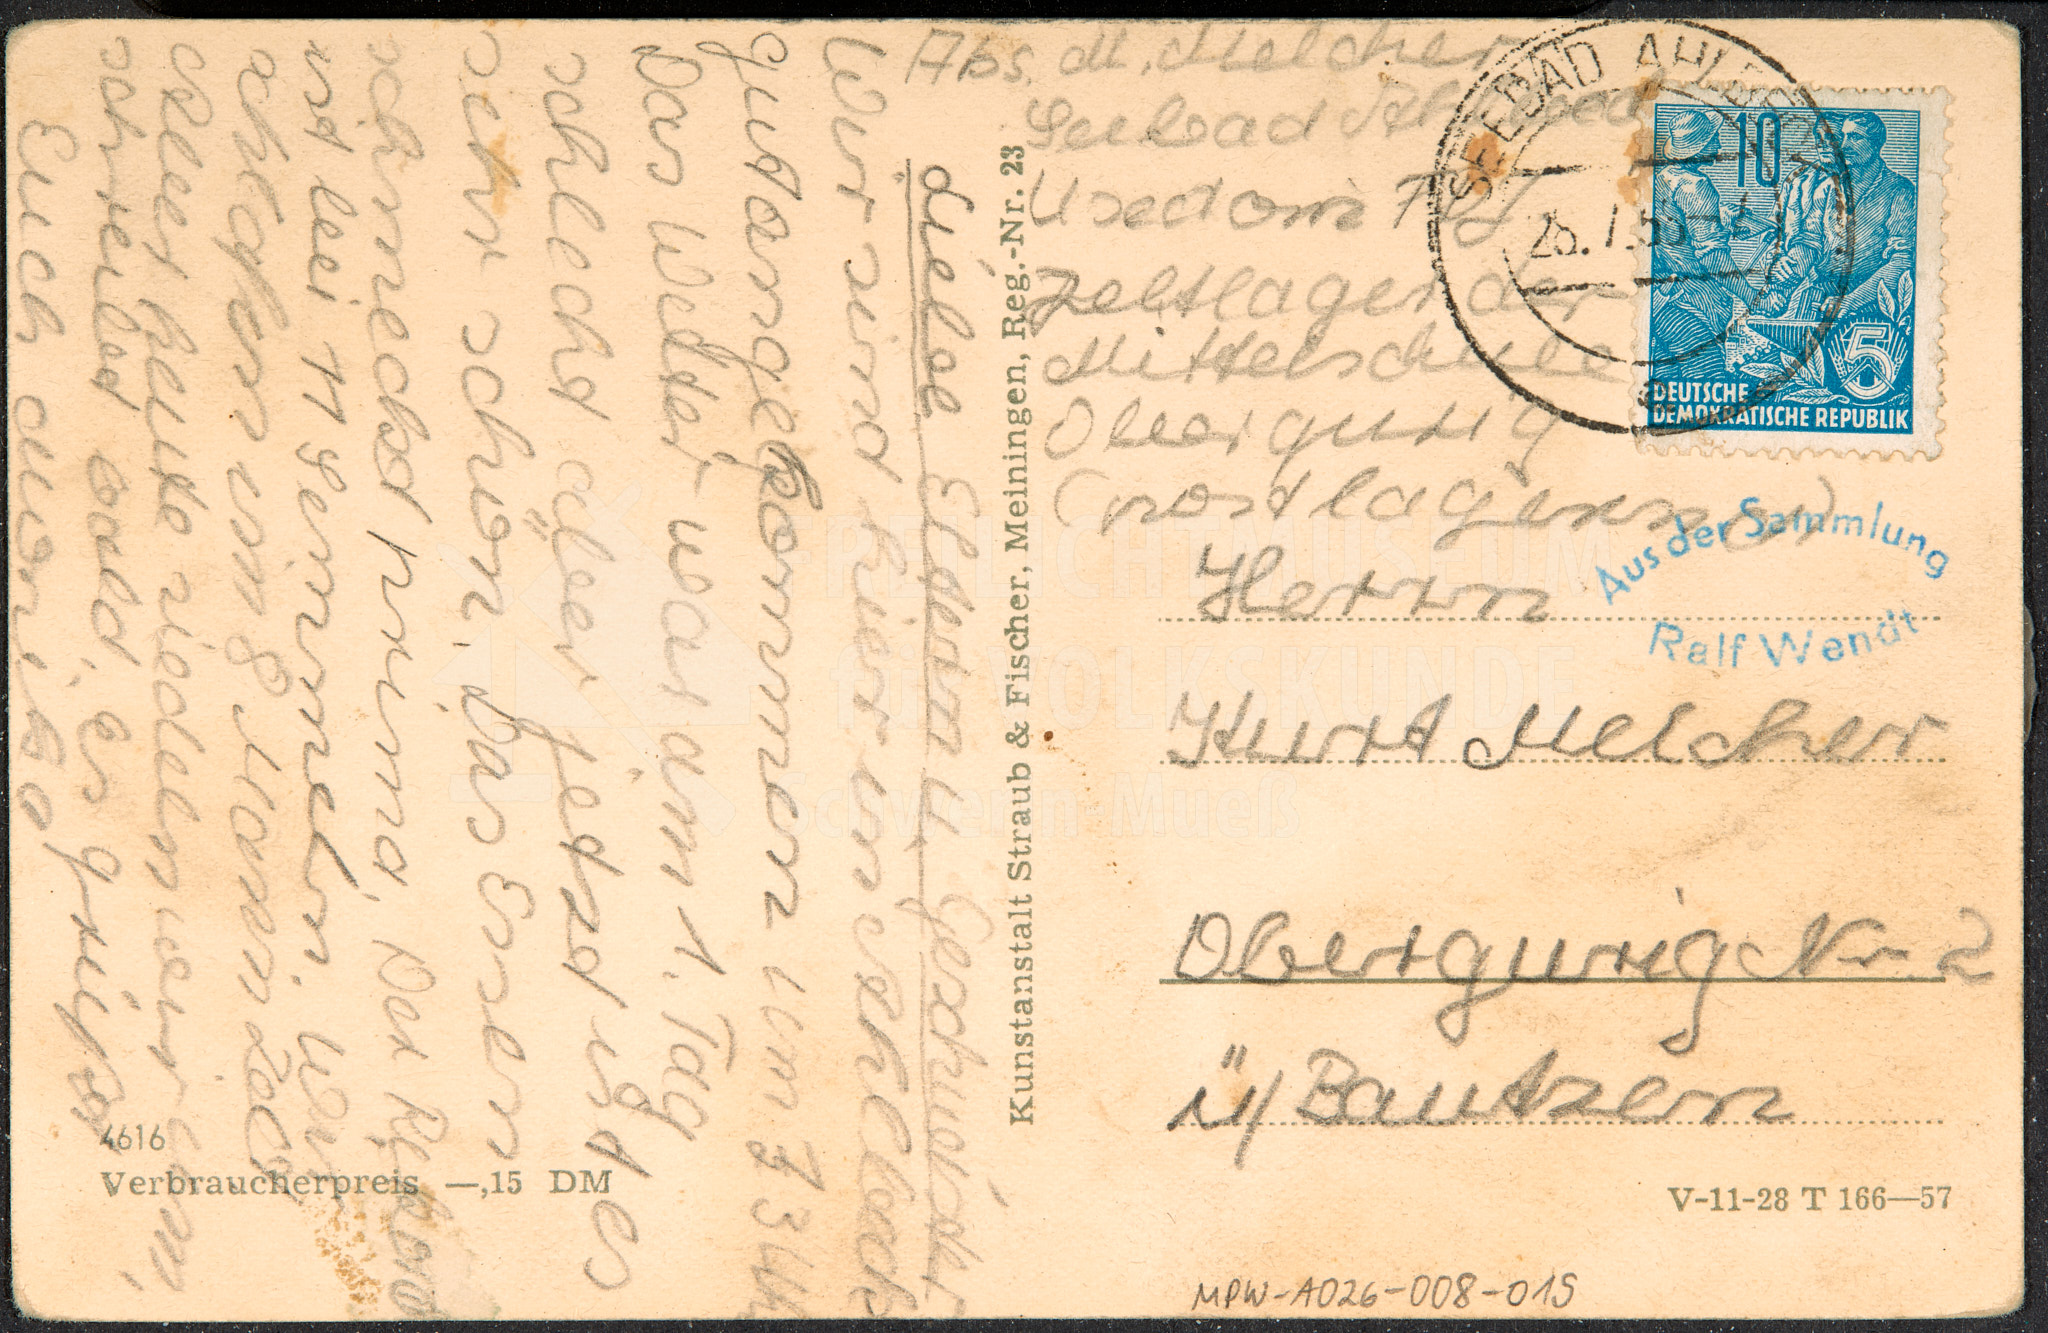 Liebe Eltern u. Geschwister
Wir sind hier in Ahlbeck
gut angekommen um 13 Uhr
Das Wetter war am 1. Tag
schlecht aber jetzt ist es
sehr schön. Das Essen
schmeckt prima. Der Rhabarber
ist bei 11 Wir
schlafen um 8 Mann Zelt
Seid heute niedelm wir am,
schreibe bald. es grüßt
Euch euer
4616
Verbraucherpreis —,15 DM
Kunstanstalt Straub & Fischer, Meiningen, Reg.-Nr. 23
Abs. M. Melcher
Seebad Ahlbeck
Usedom
Zeltlager der
Mittelschule
Obergurig
(postlagernd)
SEEBAD AHLBECK
DEUTSCHE
DEMOKRATISCHE REPUBLIK
10
5
Aus der Sammlung
Ralf Wendt
Herrn
Kurt Melcher
Obergurig Nr. 2
ü/ Bautzen
V-11-28 T 166—57
MPW-A026-008-019
FREILICHTMUSEUM
für VOLKSKUNDE
Schwerin-Mueß